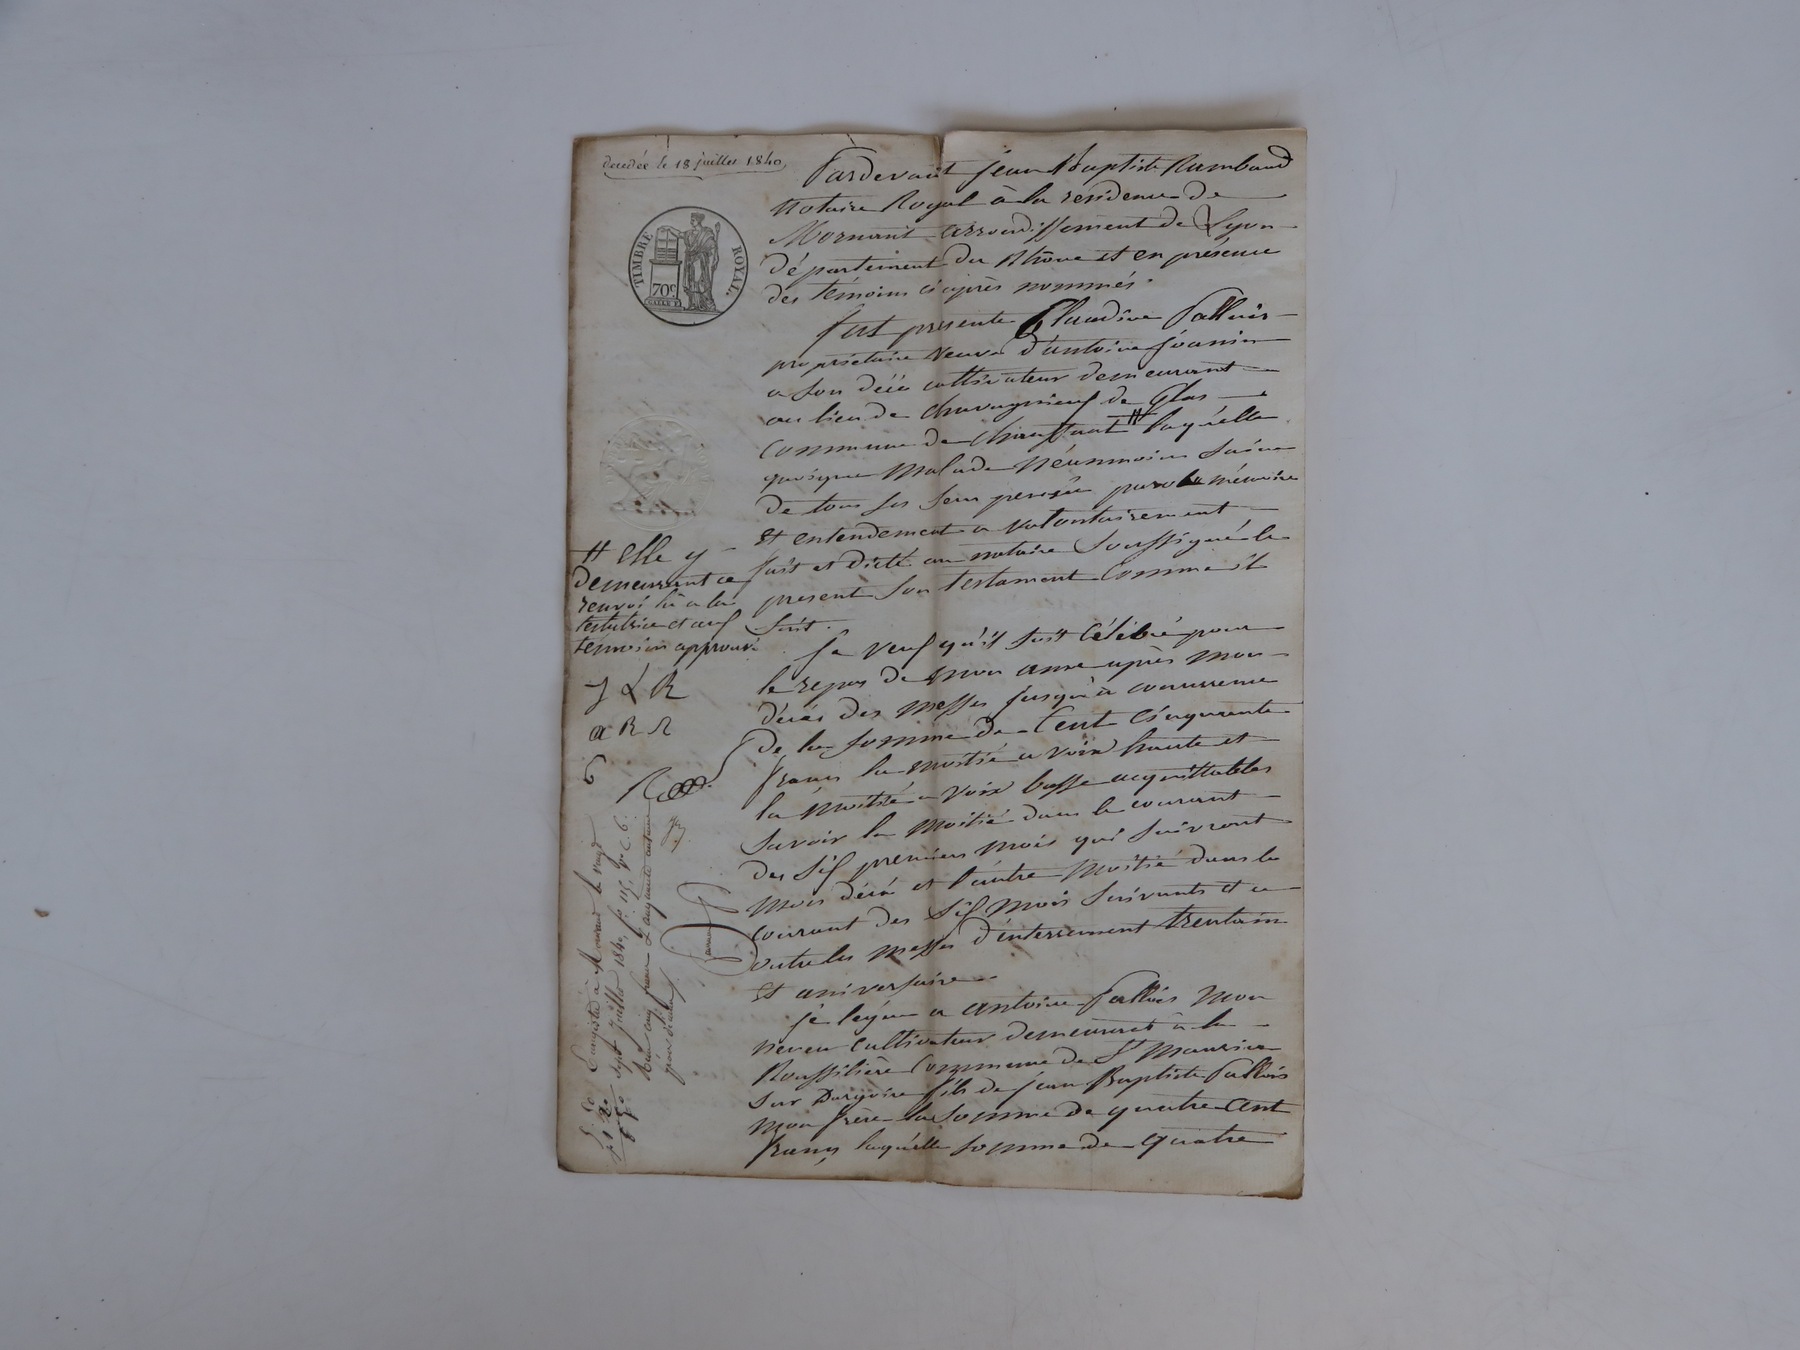 decedée le 18 juillet 1840,
TIMBRE ROYAL.
70c
Pardevant jean Baptiste Rambaud
Notaire Royal à la residence de
Mornant arrondissement de Lyon
département du Rhône et en présence
des témoins ci après nommés.
fut présente Claudine Pallais
propriétaire veuve d'antoine joannin
a son décè cultivateur demeurant
au lieu de chavagnieux de Glas
commune de chaussant # laquelle
quoique malade néanmoins saine
de tous ses sens pensée parole mémoire
et entendement a volontairement
fait et dicté au notaire soussigné le
present son testament comme il
suit.
# elle y
demeurant ce
renvoi lu a la
testatrice et aux
temoins approuvé
J L R
a R R
je veux qu'il soit célébré pour
le repos de mon ame après mon
décès des messes jusqu'à concurrence
de la somme de Cent cinquante
francs la moitié a voix haute et
la moitié a voix basse acquittables
savoir la moitié dans le courant
des six premiers mois qui suivront
mon décès et l'autre moitié dans le
courant des six mois suivants et ce
outre les messes d'enterrement trentain
et aniversaire.
je lègue a antoine Pallais mon
neveu cultivateur demeurant à la
Roussilière commune de St Maurice
sur Dargoire fils de jean Baptiste Pallais
mon frère la somme de quatre cent
francs laquelle somme de quatre
Enregistré à Mornant le vingt
sept juillet 1840, fo 115, Vo C. 6.
Reçu cinq francs cinquante centimes